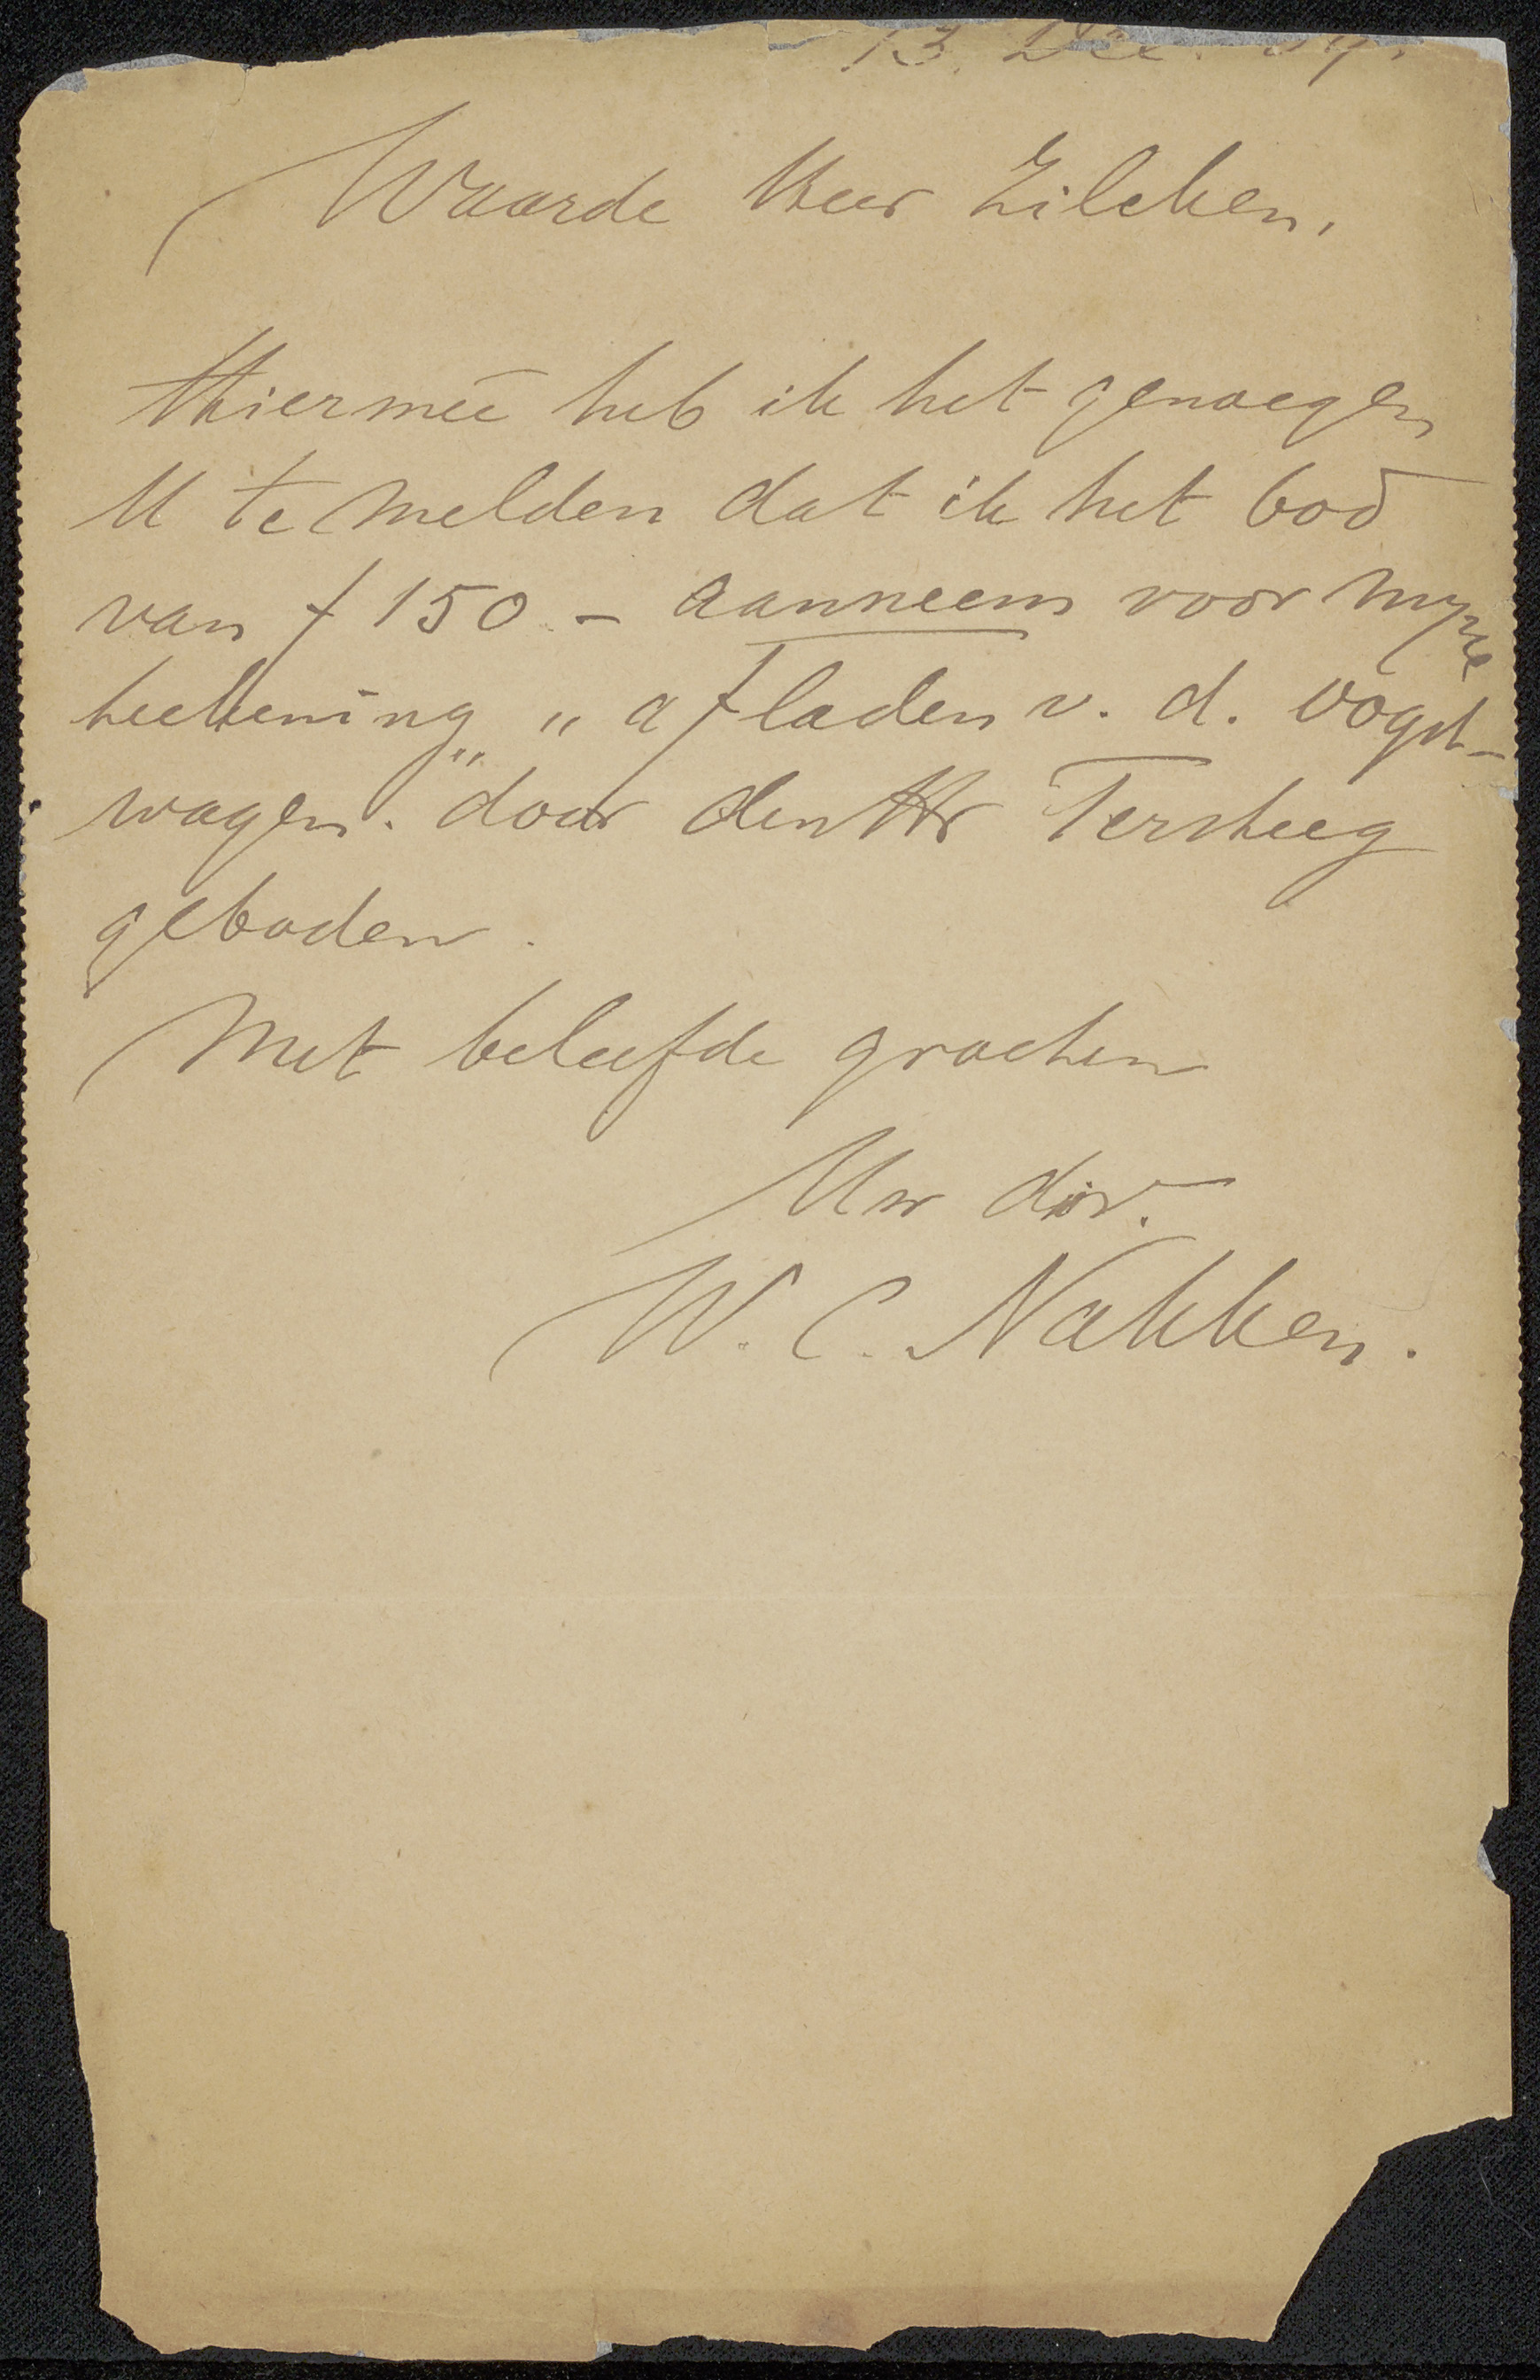 13. Dec. 89.
Waarde Heer Zilcken,
Hiermeê heb ik het genoegen
U te melden dat ik het bod
van f 150 - aanneem voor myne
teekening „ afladen v. d. oogst-
wagen. " door den Hr Tersteeg
geboden.
Met beleefde groeten
Uw dw.
W. C. Nakken.